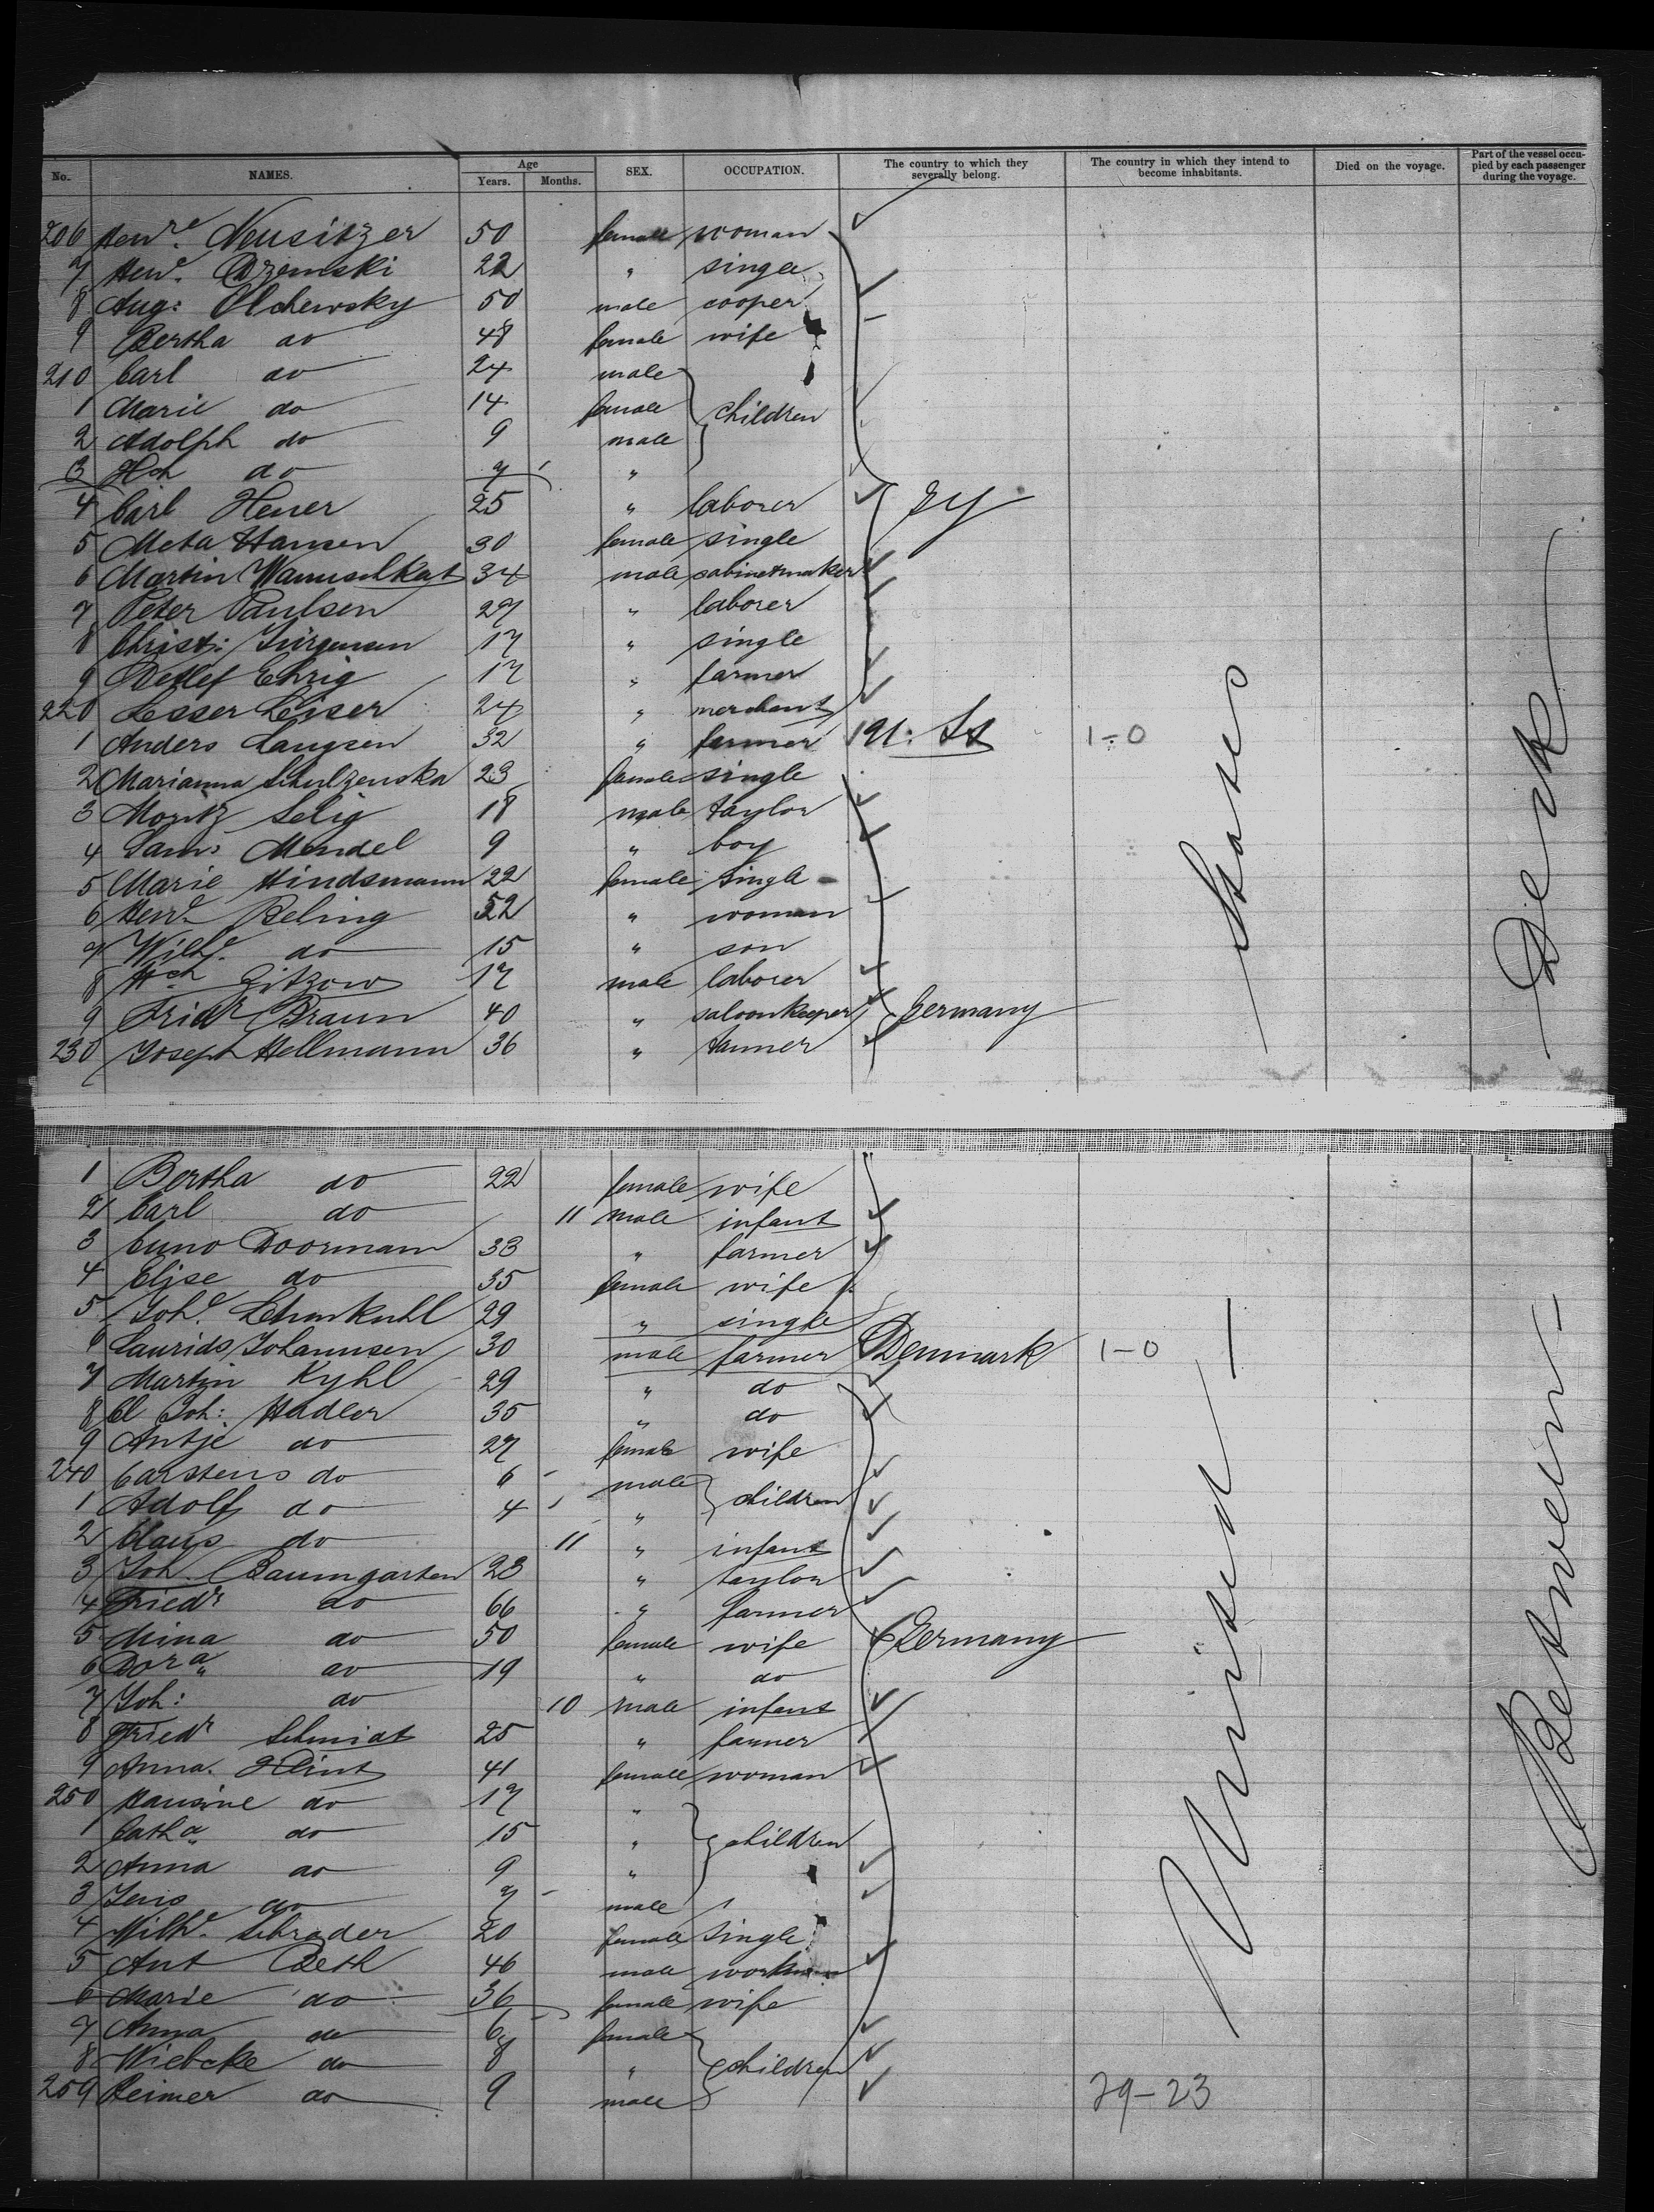 No. NAMES. Age Years. Months. SEX. OCCUPATION. The country to which they severally belong. The country in which they intend to become inhabitants. Died on the voyage. Part of the vessel occupied by each passenger during the voyage.
206 Henre. Neusitzer 50 female woman
7 Hene. Drzemski 22 " single
8 Aug: Olchewsky 50 male cooper
9 Bertha do 48 female wife
210 Carl do 24 male
1 Marie do 14 female children
2 Adolph do 9 male
3 Hch do 7 "
4 Carl Heuer 25 " laborer Gy
5 Meta Hansen 30 female single
6 Martin Wannschkat 34 male cabinetmaker
7 Peter Paulsen 27 " laborer
8 Christ: Jürgensen 17 " single
9 Detlef Ehrig 17 " farmer
220 Lesser Leiser 24 " merchant
1 Anders Laugsen 32 " farmer U. St 1-0
2 Marianna Schulzenska 23 female single
3 Moritz Selig 18 male taylor
4 Sam: Mendel 9 " boy
5 Marie Hindsmann 22 female single
6 Henre. Reling 52 " woman
7 Wilhe. do 15 " son
8 Hch Zitzow 17 male laborer
9 Friedr Braun 40 " saloonkeeper Germany
230 Joseph Hellmann 36 " tanner
1 Bertha do 22 female wife
2 Carl do 11 male infant
3 Cuno Doormann 33 " farmer
4 Elise do 35 female wife
5 Johe. Lehmkuhl 29 " single
6 Laurids Johannsen 30 male farmer Denmark 1-0
7 Martin Kyhl 29 " do
8 Cl Joh: Hadler 35 " do
9 Antje do 27 female wife
240 Carstens do 6 male children
1 Adolf do 4 "
2 Claus do 11 " infant
3 Joh. Baumgarten 23 " taylor
4 Friedr do 66 " farmer
5 Mina do 50 female wife Germany
6 Dora do 19 " do
7 Joh: do 10 male infant
8 Friedr Schmidt 25 " farmer
9 Anna Flint 41 female woman
250 Hansine do 17 "
1 Catha do 15 " children
2 Anna do 9 "
3 Jens do 7 male
4 Wilhe. Schrader 20 female single
5 Ant Beth 46 male workman
6 Marie do 36 female wife
7 Anna do 6 female
8 Wiebcke do 8 " children
259 Reimer do 9 male
29-23
United States
Between Deck